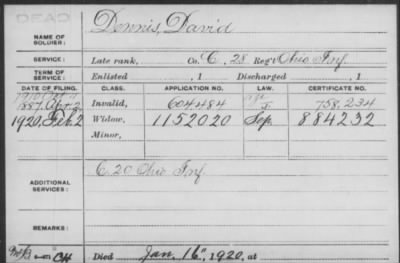 DEAD
NAME OF SOLDIER: Dennis, David
SERVICE: Late rank, Co. C, 28 Reg't Ohio Inf.
TERM OF SERVICE: Enlisted , 1 Discharged , 1
DATE OF FILING. CLASS. APPLICATION NO. LAW. CERTIFICATE NO.
1887, Apr 2 Invalid, 604484 J 758,234
1920, Feb. 2 Widow, 1152020 Sep. 884232
Minor,
ADDITIONAL SERVICES: C. 20 Ohio Inf.
REMARKS:
Died Jan. 16", 1920, at